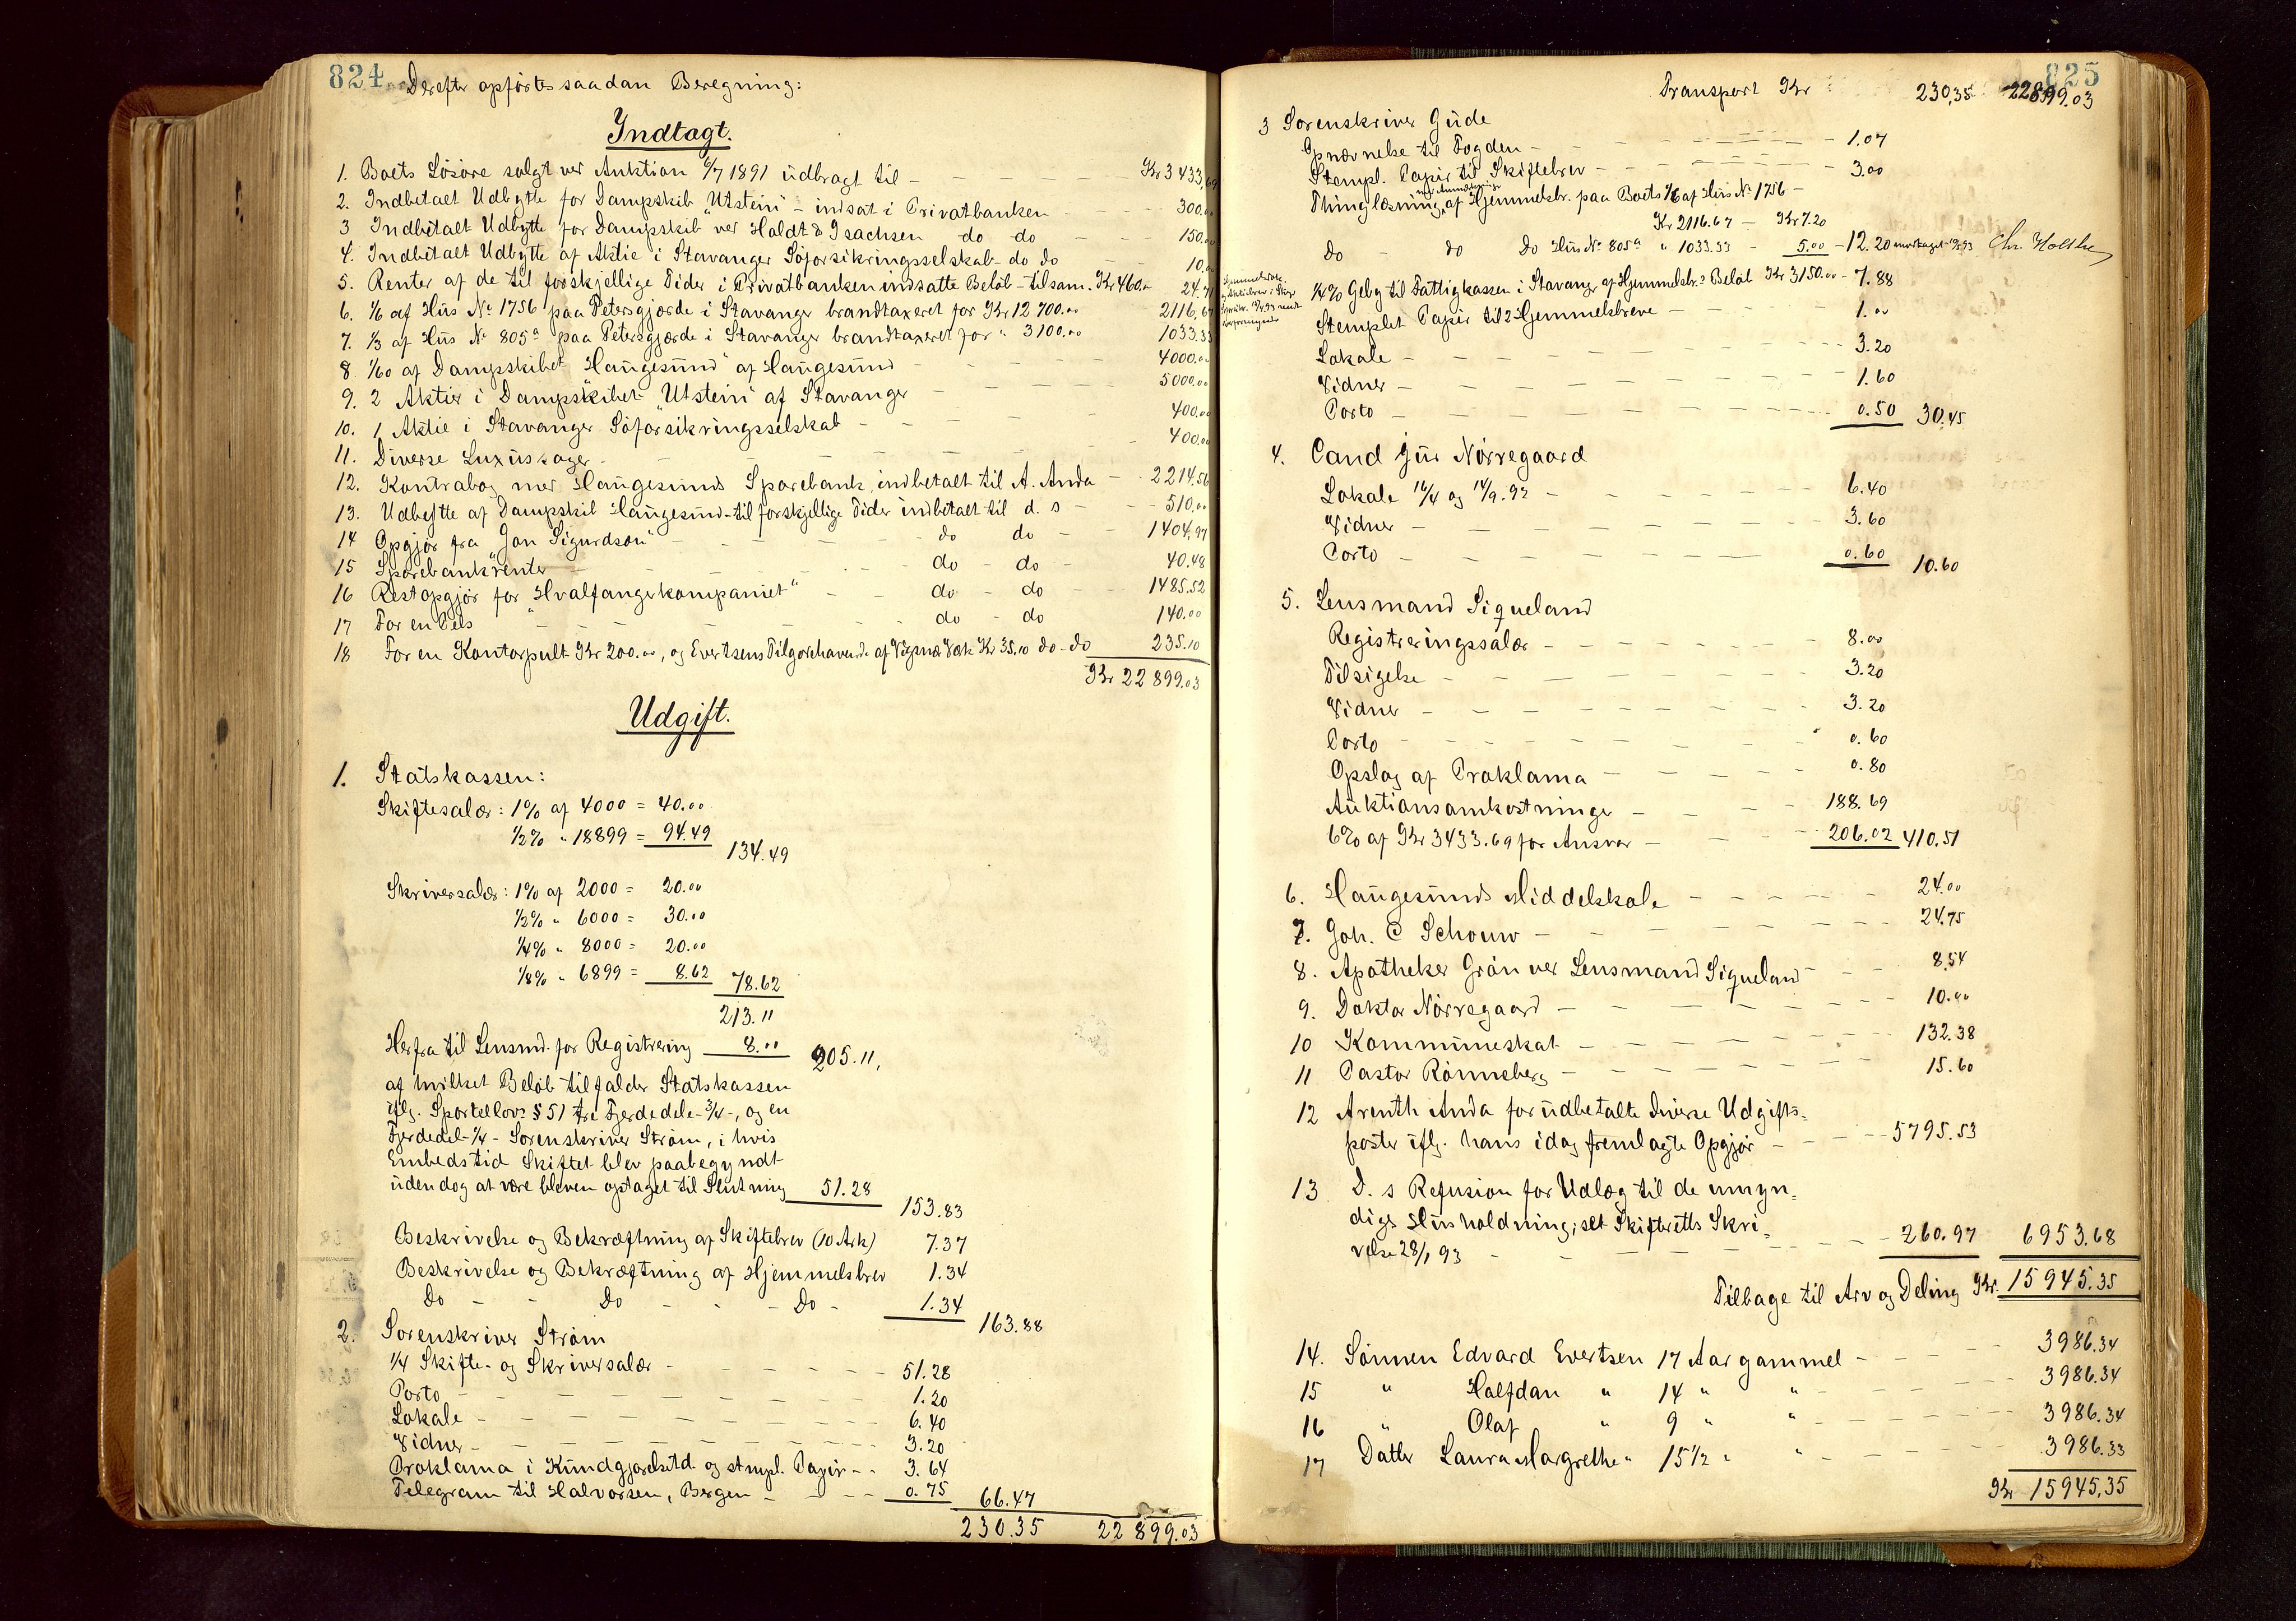 824
Derefter opførtes saadan Beregning:
Indtægt.
1. Boets Løsøre solgt ved Auktion 6/7 1891 udbragt til – Kr 3433,69
2. Indbetalt Udbytte for Dampskib "Utstein" – indsat i Privatbanken – 300.00
3 Indbetalt Udbytte for Dampskib ved Holdt & Isachsen do do – 150.00
4. Indbetalt Udbytte af Aktie i Stavanger Søforsikringsselskab – do do – 10.00
5. Renter af de til forskjellige Tider i Privatbanken indsatte Beløb – tilsam. Kr 460.00 24.71
6. 1/6 af Hus No 1756 paa Petersgjerde i Stavanger brandtaxeret for Kr 12700.00 2116,67
7. 1/3 af Hus No 805a paa Petersgjærde i Stavanger brandtaxeret for " 3100.00 1033.33
8. 1/60 af Dampskibet "Haugesund" af Haugesund – 4000.00
9. 2 Aktier i Dampskibet "Utstein" af Stavanger – 5000.00
10. 1 Aktie i Stavanger Søforsikringsselskab – 400.00
11. Diverse Luxussager – 400.00
12. Kontrabog med Haugesunds Sparebank, indbetalt til A. Anda – 2214.56
13. Udbytte af Dampskib Haugesund – til forskjellige Tider indbetalt til d. s – 510.00
14 Opgjør fra "Jon Sigurdson" – do do – 1404,97
15 Sparebankrenter – do – do – 40.48
16 Restopgjør for "Hvalfangerkompaniet" – do – do – 1485.52
17 For en Pels – do – do 140.00
18 For en Kontorpult Kr 200.00, og Evertsens Tilgodehavende af Vigsnæs Værk Kr 35.10 do – do 235.10
Kr 22899.03
Udgift.
1. Statskassen:
Skiftesalær: 1% af 4000 = 40.00
1/2% " 18899 = 94.49 134.49
Skriversalær: 1% af 2000 = 20.00
1/2% " 6000 = 30.00
1/4% " 8000 = 20.00
1/8% " 6899 = 8.62 78.62
213.11
Herfra til Lensmd. for Registrering 8.00 205.11,
af hvilket Beløb tilfalder Statskassen
iflg. Sportellovs § 51 tre Fjerdedele – 3/4 –, og en
Fjerdedel – 1/4 – Sorenskriver Strøm, i hvis
Embedstid Skiftet blev paabegyndt
uden dog at være bleven optaget til Slutning 51.28 153.83
Beskrivelse og Bekræftning af Skiftebrev (10 Ark) 7.37
Beskrivelse og Bekræftning af Hjemmelsbrev 1.34
Do – Do – Do – 1.34 163.88
2. Sorenskriver Strøm
1/4 Skifte- og Skriversalær – 51.28
Porto – 1.20
Lokale – 6.40
Vidner – 3.20
Proklama i Kundgjørelsetid. og stempl. Papir – 3.64
Telegram til Halvorsen, Bergen – 0.75 66.47
230.35 22899.03
825
Transport Kr 230,35 22899.03
3 Sorenskriver Gude
Opnævnelse til Fogden – 1.07
Stempl. Papir til Skiftebrev – 3.00
Thinglæsning af Hjemmelsbr. paa Boets 1/6 af Hus No 1756 –
Kr 2116.67 – Kr 7.20
do do do Hus No 805a " 1033.33 – 5.00 – 12.20 modtaget Chr. Holthe
1/4% Geby til Fattigkassen i Stavanger af Hjemmelsbr.s Beløb Kr 3150.00 – 7.88
Stemplet Papir til 2 Hjemmelsbreve – 1.00
Lokale – 3.20
Vidner – 1.60
Porto – 0.50 30.45
4. Cand jur Nørregaard
Lokale 16/4 og 14/9.92 – 6.40
Vidner – 3.60
Porto – 0.60 10.60
5. Lensmand Siqueland
Registreringssalær – 8.00
Tilsigelse – 3.20
Vidner – 3.20
Porto – 0.60
Opslag af Proklama – 0.80
Auktionsomkostninger – 188.69
6% af Kr 3433.69 for Ansvar – 206.02 410.51
6. Haugesunds Middelskole – 24.00
7. Joh. C Schouw – 24.75
8. Apotheker Grøn ved Lensmand Siqueland – 8.54
9. Doktor Nørregaard – 10.00
10 Kommuneskat – 132.38
11 Pastor Rønneberg – 15.60
12 Arenth Anda for udbetalte diverse Udgifts-
poster iflg. hans idag fremlagte Opgjør – 5795.53
13 D. s Refusion for Udlæg til de umyn-
diges Husholdning, set Skifteretts Skri-
velse 28/1 93 – 260.97 6953.68
Tilbage til Arv og Deling Kr. 15945.35
14. Sønnen Edvard Evertsen 17 Aar gammel – 3986.34
15 " Halfdan " 14 " " – 3986.34
16 " Olaf " 9 " " – 3986.34
17 Datter Laura Margrethe " 15 1/2 " " – 3986.33
Kr 15945,35